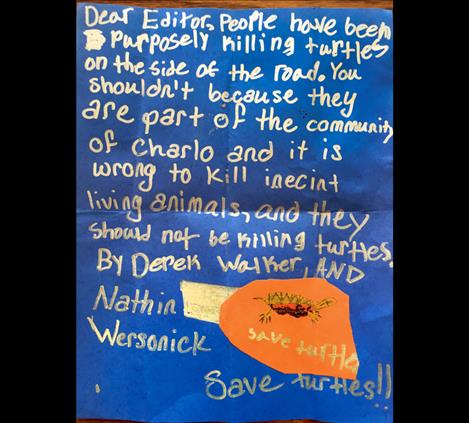 Dear Editor, People have been
Purposely killing turtles
on the side of the road. You
shouldn't because they
are part of the community
of Charlo and it is
wrong to kill inecint
living animals, and they
should not be killing turtles.
By Derek Walker, AND
Nathin
Wersonick
save turtles
Save turtles!!